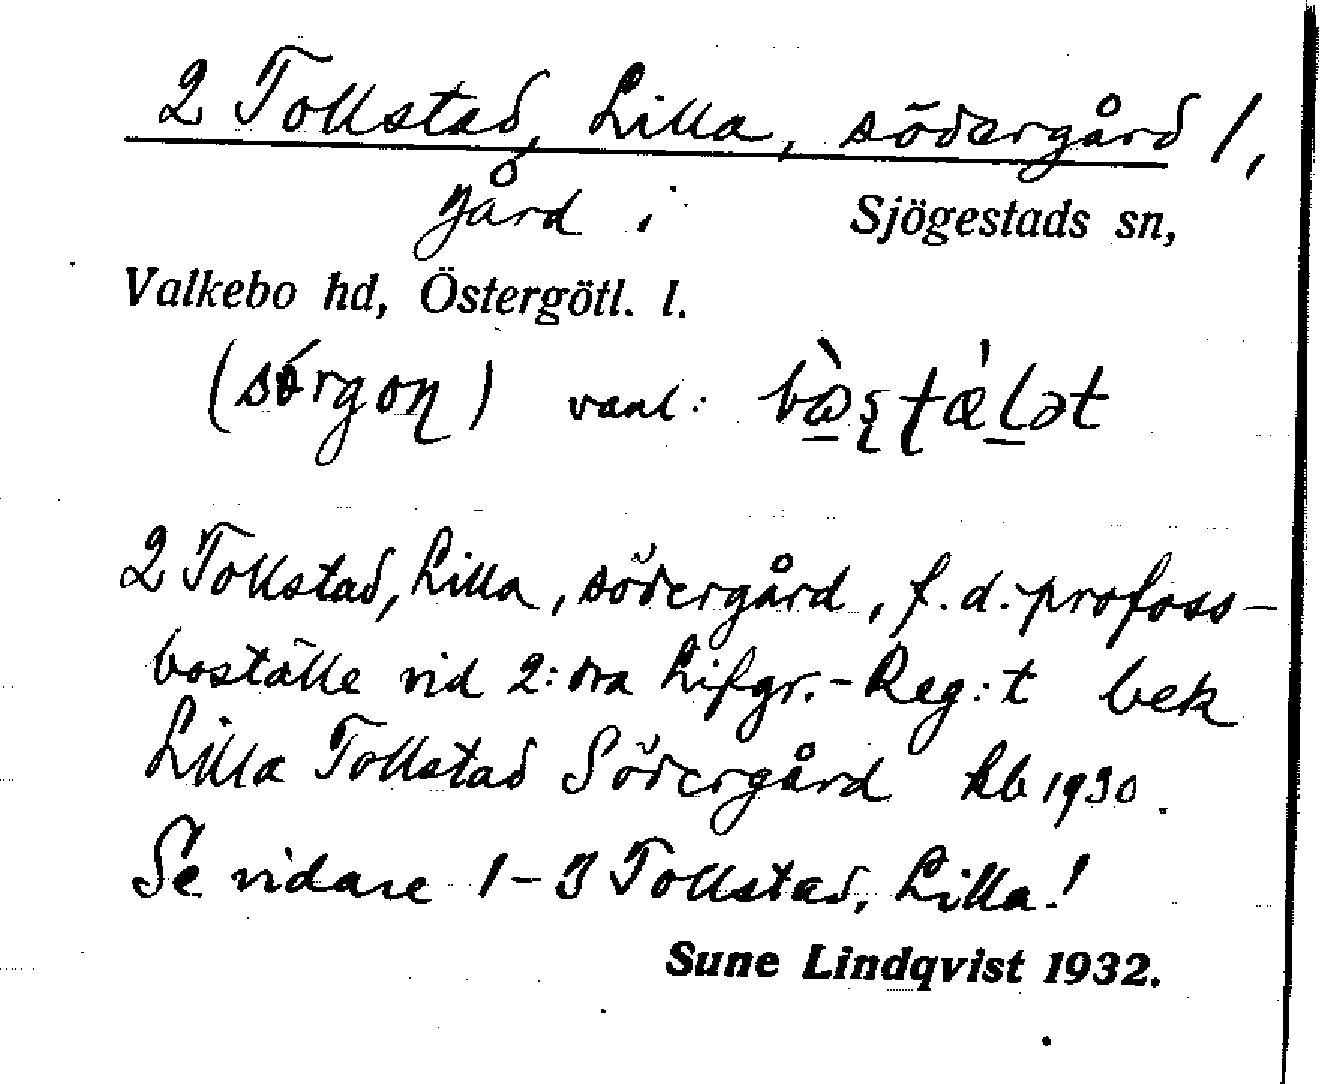 2 Tollstad, Lilla, södergård /,
gård i Sjögestads sn,
Valkebo hd, Östergötl. l.
(sǿrgoɳ) vanl:
2 Tollstad, Lilla, södergård, f.d. profoss-
boställe vid 2:dra Lifgr.-Reg:t bek
Lilla Tollstad Södergård Rb 1930.
Se vidare 1-3 Tollstad, Lilla!
Sune Lindqvist 1932.